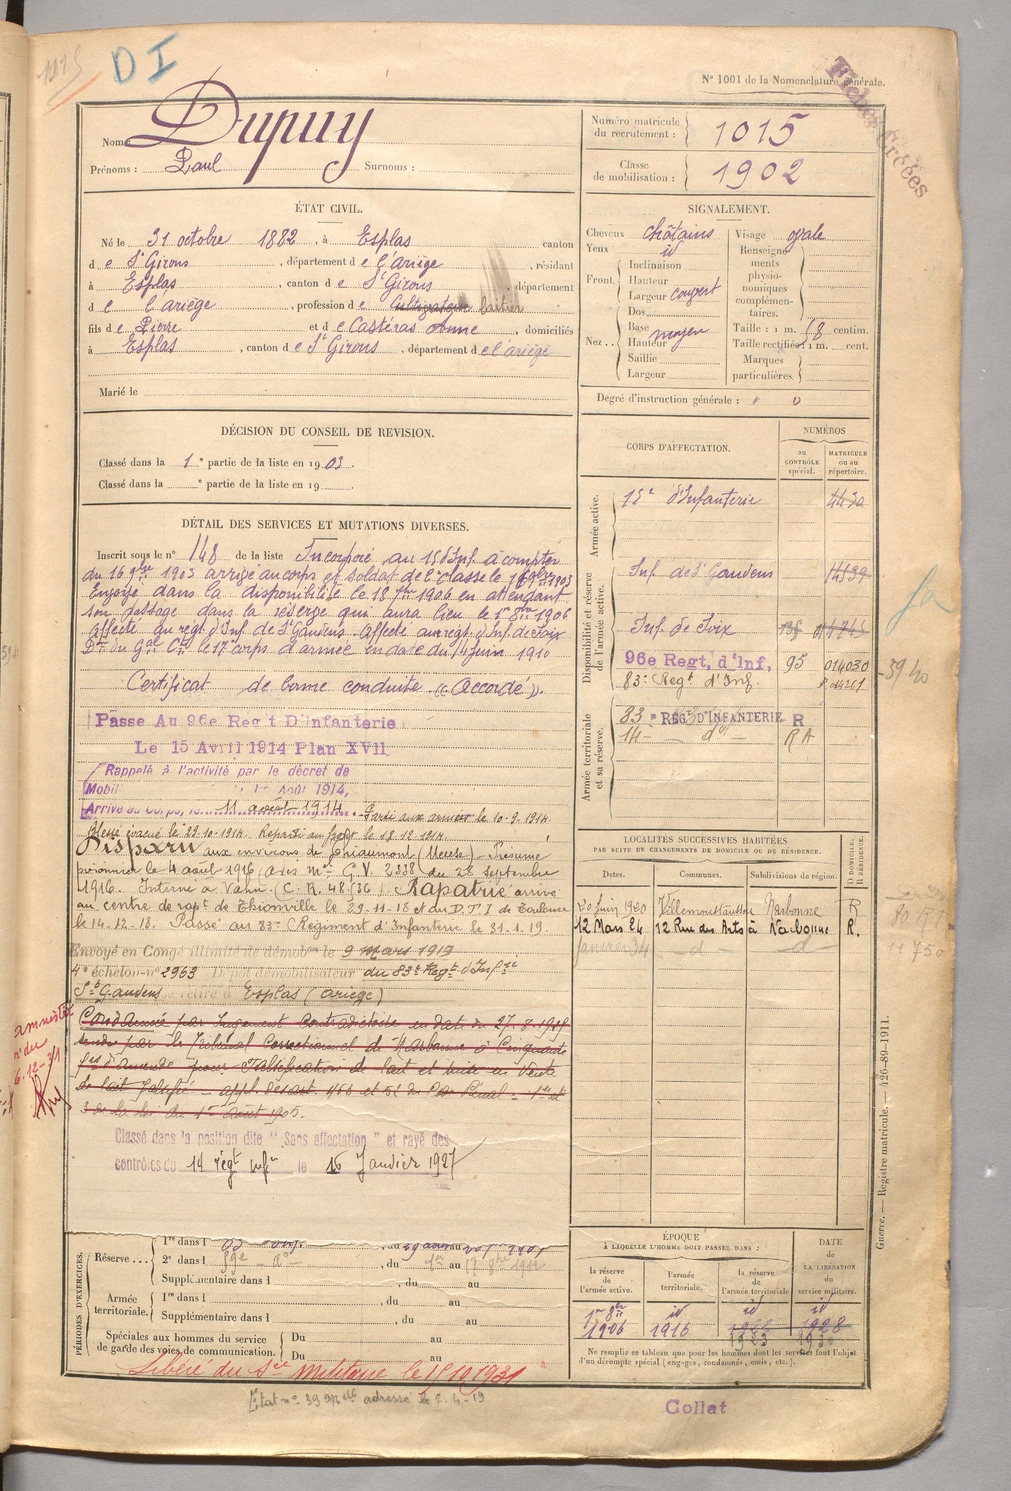 1015
DI
N° 1001 de la Nomenclature générale.
Fiches Créées
Nom : Dupuy
Prénoms : Paul Surnoms :
Numéro matricule du recrutement : 1015
Classe de mobilisation : 1902
ÉTAT CIVIL.
Né le 31 octobre 1882, à Esplas canton
d e St Girons, département d e l'ariège, résidant
à Esplas, canton d e St Girons département
d e l'ariège, profession d e Cultivateur laitier
fils d e Pierre et d e Castéras Anne, domiciliés
à Esplas, canton d e St Girons, département d e l'ariège
Marié le
SIGNALEMENT.
Cheveux châtains
Yeux id
Front Inclinaison
Hauteur
Largeur couvert
Nez Dos
Base moyen
Hauteur
Saillie
Largeur
Visage ovale
Renseignements physionomiques complémentaires.
Taille : 1 m. 58 centim.
Taille rectifiée : 1 m. cent.
Marques particulières.
Degré d'instruction générale :
DÉCISION DU CONSEIL DE REVISION.
Classé dans la 1e partie de la liste en 1903.
Classé dans la e partie de la liste en 19 .
DÉTAIL DES SERVICES ET MUTATIONS DIVERSES.
Inscrit sous le n° 148 de la liste Incorporé au 15 d'Inf. à compter
du 16 9bre 1903 arrivé au corps et soldat de 2e classe le 16 9bre 1903
Envoyé dans la disponibilité le 18 1906 en attendant
son passage dans la réserve qui aura lieu le 1er 1906
Affecté au régt d'Inf. de St Gaudens. Affecté au régt d'Inf. de Foix
Don du Gal Ct le 17e corps d'armée en date du 11 juin 1910
Certificat de bonne conduite « Accordé ».
Passé Au 96e Reg't D'Infanterie
Le 15 Avril 1914 Plan XVII
Rappelé à l'activité par le décret de
Mobil 1er Août 1914,
Arrivé au Corps, le 11 août 1914. Parti aux armées le 10-9-1914.
Blessé évacué le 29-10-1914. Reparti au front le 18-12-1914.
Disparu aux environs de Thiaumont (Meuse) – Présumé
prisonnier le 4 août 1916 (avis Mel G.V. 2338 du 28 septembre
1916. Interné à Vahn. (C.R. 48536) Rapatrié arrivé
au centre de rapt de Thionville le 29-11-18 et au D.T.I de Toulouse
le 14-12-18. Passé au 83e Régiment d'Infanterie le 31-1-19.
Envoyé en Congé illimité de démobon le 9 Mars 1919
4e échelon n° 2963 Dépôt démobilisateur du 83e Regt d'Infie
St Gaudens se retire à Esplas (ariège)
Condamné par Jugement Contradictoire en date du 27-8-1929
rendu par le Tribunal Correctionnel de Narbonne à Cinquante
frs d'amende pour Falsification de lait et mise en Vente
de lait falsifié – appl. des art. et 52 du Code Pénal – 1er et
3 de la loi du 1er Août 1905.
amnistié
6.12-31
Classé dans la position dite " Sans affectation " et rayé des
contrôles du 14 régt infie le 15 Janvier 1927
CORPS D'AFFECTATION.
NUMÉROS
au CONTRÔLE spécial.
MATRICULE ou au répertoire.
Armée active.
15e d'Infanterie 4430
Disponibilité et réserve de l'armée active.
Inf. de St Gaudens
Inf. de Foix
96e Regt, d'Inf, 95 014030
83e Regt d'Inf.
Armée territoriale et sa réserve.
83e REGt D'INFANTERIE R
14– do – RA
LOCALITES SUCCESSIVES HABITÉES
PAR SUITE DE CHANGEMENTS DE DOMICILE OU DE RÉSIDENCE.
Dates. Communes. Subdivisions de région. D DOMICILE. R RÉSIDENCE.
20 juin 1920 Villemoustaussou Narbonne R
12 Mars 24 12 Rue des Arts à Narbonne R.
Janvier 24 – d – – d –
Guerre. — Registre matricule. — 426-89-1911.
PÉRIODES D'EXERCICES.
Réserve 1re dans l , au
2e dans l 59e – do –, du 1er au 17 9bre
Supplémentaire dans l , du au
Armée territoriale. 1re dans l , du au
Supplémentaire dans l , du au
Spéciales aux hommes du service de garde des voies de communication. Du au
Du au
ÉPOQUE
À LAQUELLE L'HOMME DOIT PASSER DANS :
la réserve de l'armée active.
l'armée territoriale.
la réserve de l'armée territoriale
DATE DE LA LIBÉRATION du service militaire.
1er 1906
id 1916
id 1922
id 1928
Ne remplir ce tableau que pour les hommes dont les services font l'objet
d'un décompte spécial (engagés, condamnés, omis, etc.).
Libéré du Sce Militaire le 15.10.1931
Collat